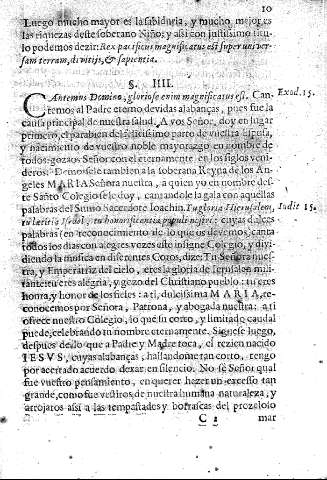 10
Luego mucho mayor es la sabiduria, y mucho mejor es
las riquezas deste soberano Niño; y assi con justissimo titu-
lo podemos dezir: Rex pacificus magnificatus est super univer
sam terram, divitijs, & sapientia.
§. IIII.
CAntemus Domino, gloriose enim magnificatus est. Can- Exod. 15.
temos al Padre eterno devidas alabanças, pues fue la
causa principal de nuestra salud. A vos Señor, doy en lugar
primero, el parabien del felicissimo parto de vuestra Esposa,
y nacimiento de vuestro noble mayorazgo en nombre de
todos: gozaos Señor con el eternamente en los siglos veni-
deros. Demosele tambien a la soberana Reyna de los An-
geles MARIA Señora nuestra, a quien yo en nombre des-
te Santo Colegio se le doy, cantandole la gala con aquellas
palabras del Sumo Sacerdote Ioachin. Tu gloria Hierusalem, Iudit 15.
tu letitia Israel, tu honorificentia populi nostri: cuyas dulces
palabras en reconocimiento de lo que os devemos, canta
todos los dias con alegres vozes este insigne Colegio, y divi-
diendo la musica en diferentes Coros, dize: Tu Señora nues-
tra, y Emperatriz del cielo, eres la gloria de Ierusalen mili-
tante: tu eres alegria, y gozo del Christiano pueblo: tu eres
honra, y honor de los fieles: a ti, dulcissima MARIA, re-
conocemos por Señora, Patrona, y abogada nuestra: a ti
ofrece nuestro Colegio, lo que su corto, y limitado caudal
puede, celebrando tu nombre eternamente. Siguese luego,
despues de lo que a Padre y Madre toca, el rezien nacido
IESVS, cuyas alabanças, hallandome tan corto, tengo
por acertado acuerdo dexar en silencio. No sé Señor qual
fue vuestro pensamiento, en querer hazer un excesso tan
grande, como fue vestiros de nuestra humana naturaleza, y
arrojaros assi a las tempestades y borrascas del proceloso
C 2 mar